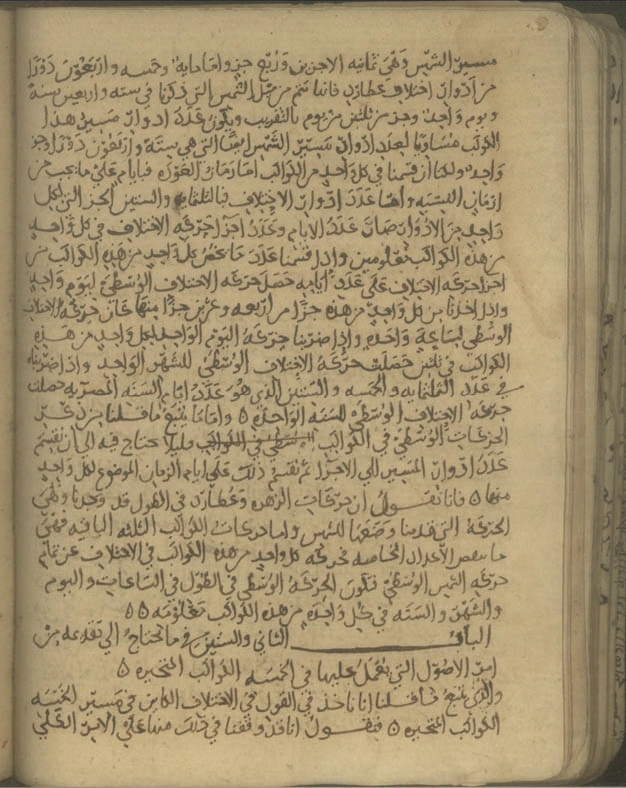 مسير الشمس وهي ثمانيه الاجزين وربع جزو اما جايه وخمسه واربعون دورا
من ادوار اختلاف عطارد فانها تتم من قبل الشمس التي ذكرنا في سته واربعين سنه
ويوم واحد وجز من ثلثين من يوم بالتقريب ويكون عدد ادوار مسير هذا
الكوكب مساويا لعدد ادوار مسير الشمس ايضا التي هي سته واربعون دورا وجز
واحد ولكنا ان قسمنا في كل واحد من الكواكب ازمان العوده في ايام علي ما يجب من
ازمان السنه واما عدد ادوار الاختلاف في الثلثمايه والستين الجز التي لكل
واحد من الادوار صار عدد الايام وعدد اجزا حركه الاختلاف في كل واحد
من هذه الكواكب معلومين واذا قسمنا عدد ما يخص كل واحد من هذه الكواكب من
اجزا حركه الاختلاف علي عدد ايامه حصل حركه الاختلاف الوسطي ليوم واحد
واذا اخذنا من كل واحد من هذه جزا من اربعه وعشرين جزا منها كان حركه الاختلاف
الوسطي لساعه واحده واذا ضربنا حركه اليوم الواحد لكل واحد من هذه
الكواكب في ثلثين حصلت حركه الاختلاف الوسطي للشهر الواحد واذا ضربناه
في عدد الثلثمايه والخمسه والستين الذي هو عدد ايام السنه المصريه حصلت
حركه الاختلاف الوسطي للسنه الواحده ٥ واما ما يتبع ما قلنا من ذكر
الحركات الوسطي في الكواكب فليس نحتاج فيه الي ان نقسم
عدد ادوار المسير الي الاجزا ثم نقسم ذلك علي ايام الزمان الموضوع لكل واحد
منها ٥ فانا نقول ان حركات الزهره وعطارد في الطول قد وجدنا وهي
الحركه التي قدمنا وضعنا للشمس واما حركات الكواكب الثلثه الباقيه فهي
ما ينقص الاعداد الخاصه بحركه كل واحد من هذه الكواكب في الاختلاف عن تمام
حركه الشمس الوسطي فتكون الحركه الوسطي في الطول في الساعات واليوم
والشهر والسنه في كل واحده من هذه الكواكب معلومه ٥٥
الباب الثاني والستين في ما نحتاج الي تقدمه من
امر الاصول التي يعمل عليها في الخمسه الكواكب المتحيره ٥
والذي يتبع ما قلنا انا ناخذ في القول في الاختلاف الكاين في مسير الخمسه
الكواكب المتحيره ٥ فنقول انا قد وقفنا في ذلك منها علي الامر الكلي